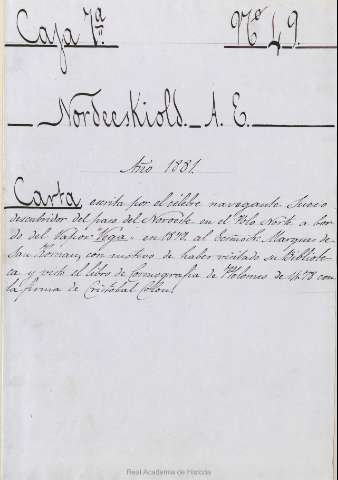 Caja 7ª Nº 49.
Nordeeskiold._ A. E.
Año 1881.
Carta escrita por el célebre navegante Sueco
descubridor del paso del Noroeste en el Polo Norte a bor
do del Vapor "Vega" en 1872 al Excmo Sr. Marques de
San Roman, con motivo de haber visitado su Bibliote
ca y visto el libro de Cosmografia de Ptolomeo de 1478 con
la firma de Cristobal Colon.
Real Academia de Historia